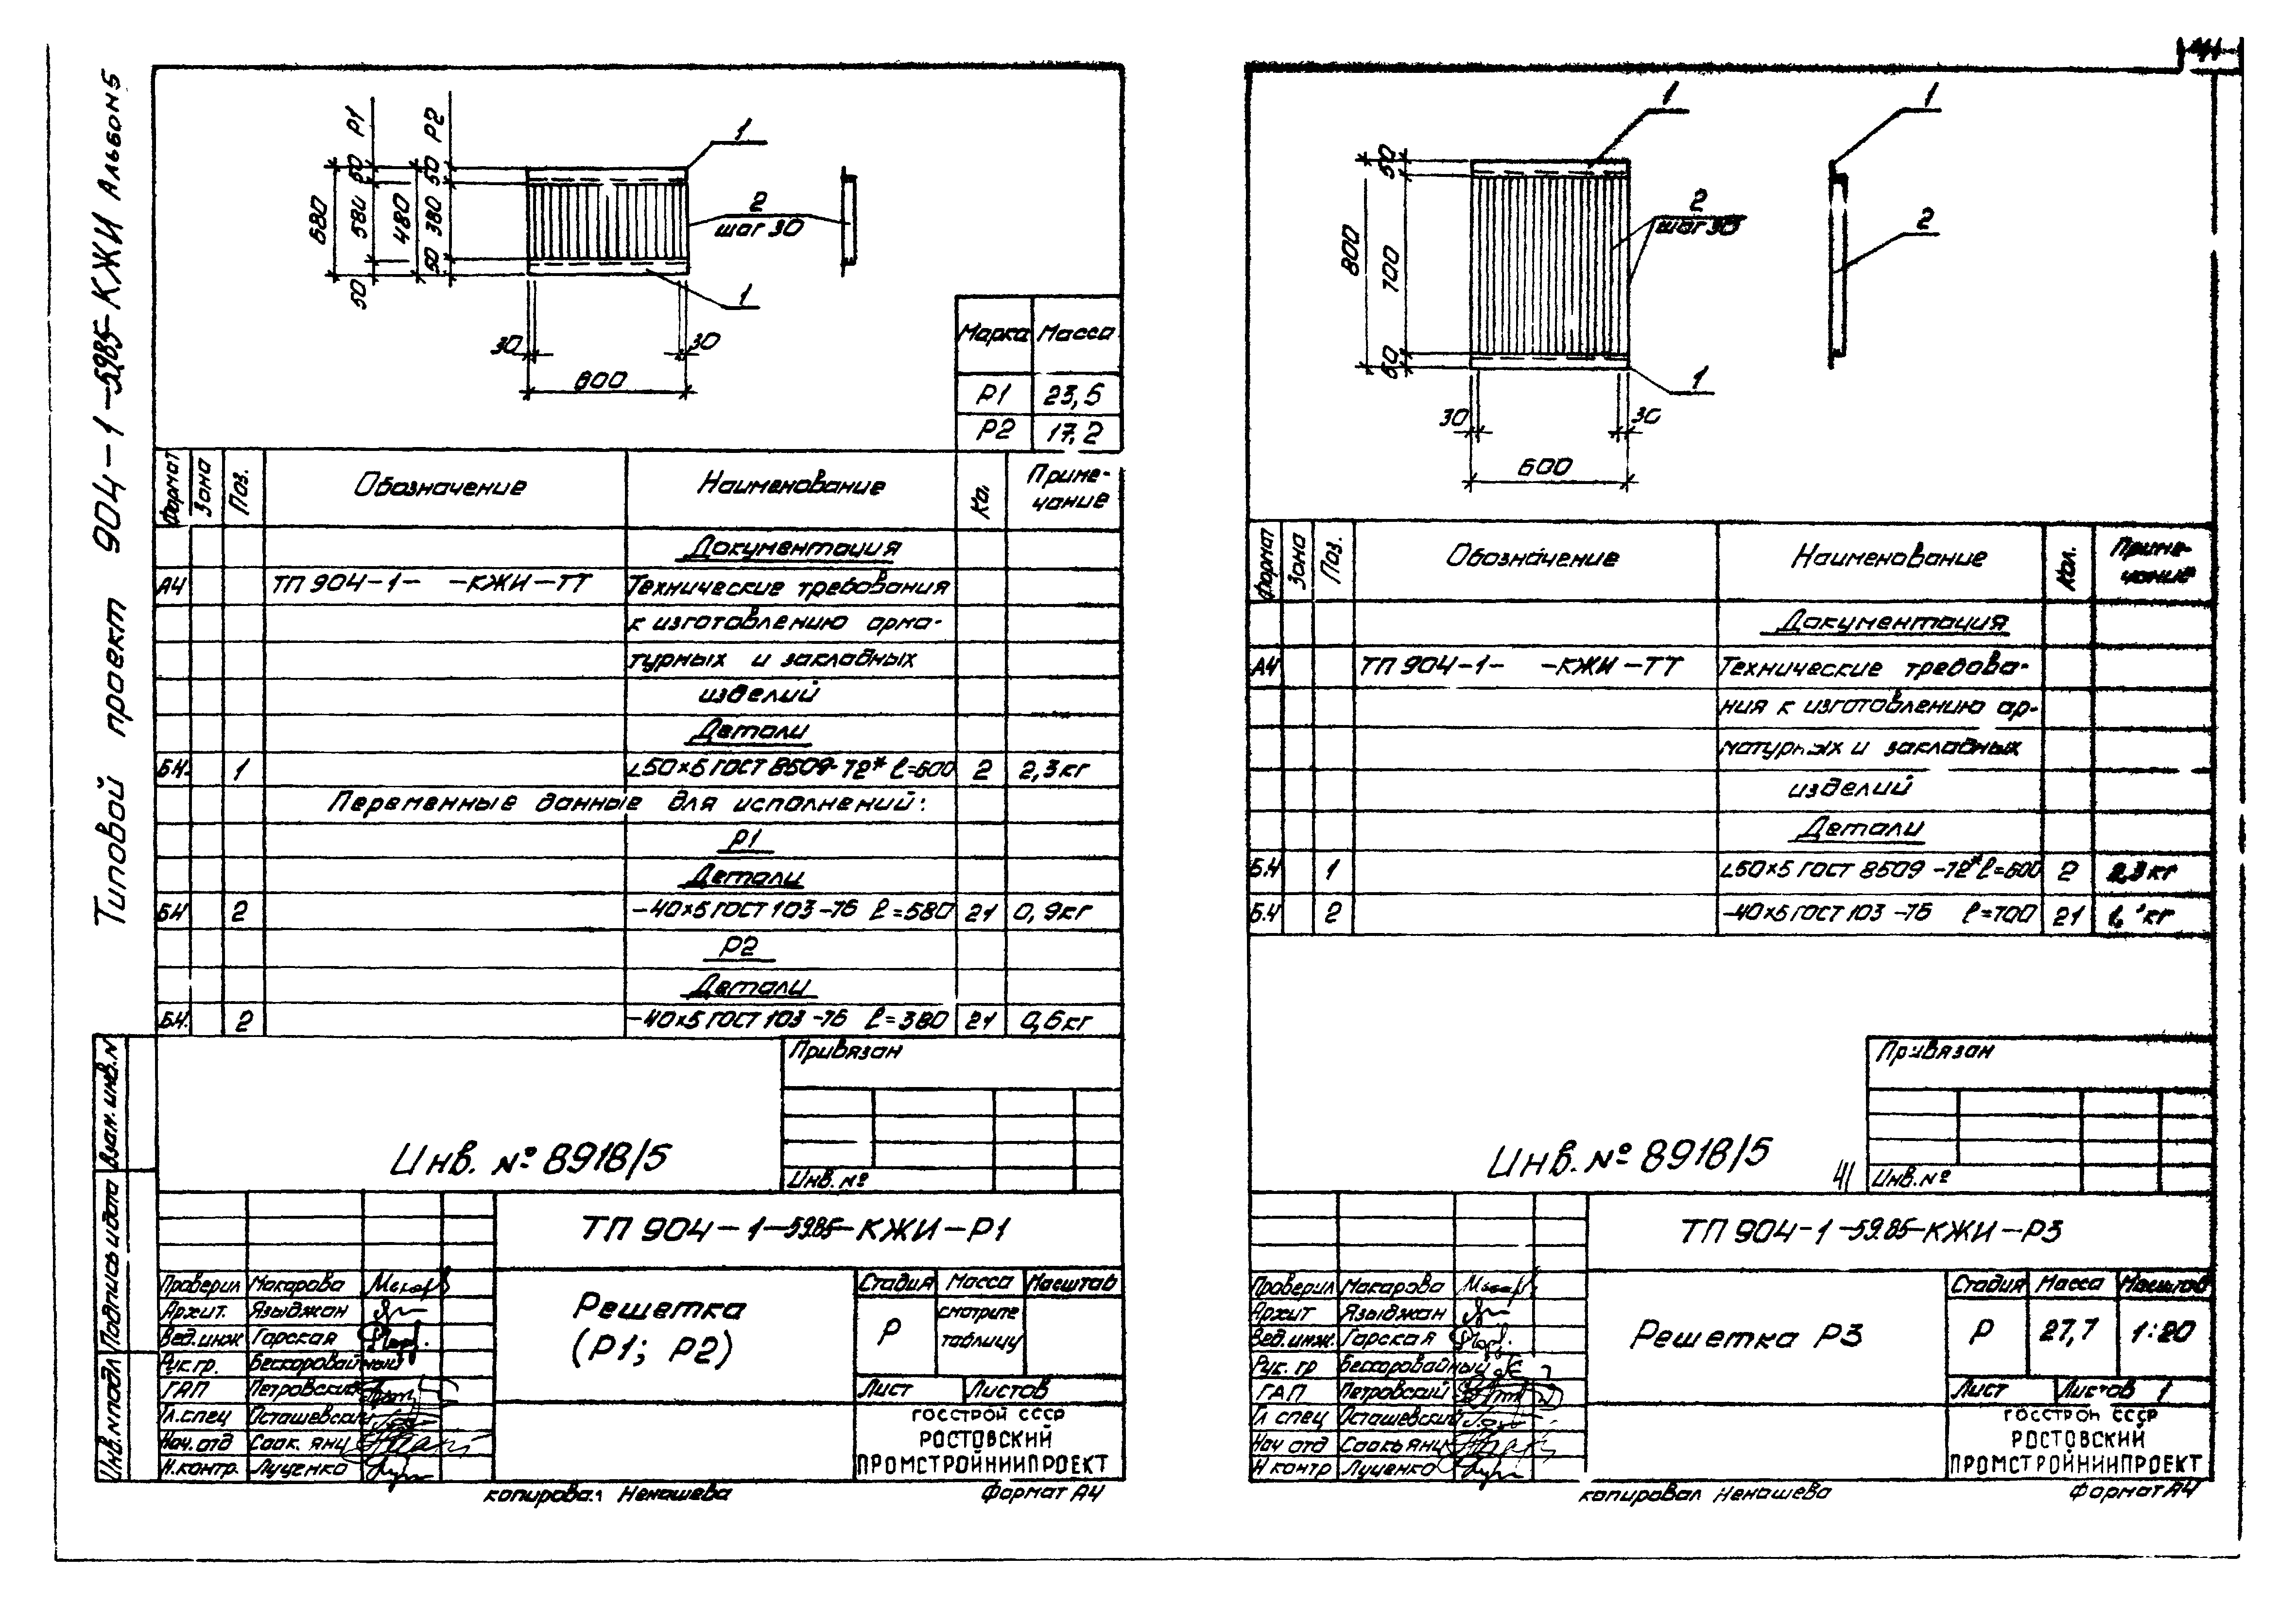 41
Типовой проект 904-1-59.85-КЖИ Альбом 5
Р1
Р2
50
50
680
580
480
380
50
50
1
2
шаг 30
1
30
30
600
Марка Масса
Р1 23,5
Р2 17,2
Формат Зона Поз. Обозначение Наименование Ко. Приме-
чание
Документация
А4 ТП 904-1- -КЖИ-ТТ Технические требования
к изготовлению арма-
турных и закладных
изделий
Детали
Б.Ч. 1 ∟50×5 ГОСТ 8509-72* ℓ=600 2 2,3 кг
Переменные данные для исполнений:
Р1
Детали
Б.Ч 2 -40×5 ГОСТ 103-76 ℓ=580 21 0,9 кг
Р2
Детали
Б.Ч. 2 -40×5 ГОСТ 103-76 ℓ=380 21 0,6 кг
Привязан
Инв. №
Инв. № 8918/5
Взам. инв. №
Подпись и дата
Инв. № подл
ТП 904-1-59.85-КЖИ-Р1
Проверил Макарова
Архит. Языджан
Вед.инж Горская
Рук.гр. Бескоровайный
ГАП Петровский
Гл.спец Осташевский
Нач.отд Саак.янц
Н.контр. Луценко
Решетка
(Р1; Р2)
Стадия Масса Масштаб
Р смотрите
таблицу
Лист Листов
ГОССТРОЙ СССР
РОСТОВСКИЙ
ПРОМСТРОЙНИИПРОЕКТ
копировал Ненашева Формат А4
1
1
50
800
700
50
2
шаг 30
2
1
30
30
600
Формат Зона Поз. Обозначение Наименование Кол. Приме-
чание
Документация
А4 ТП 904-1- -КЖИ-ТТ Технические требова-
ния к изготовлению ар-
матурных и закладных
изделий
Детали
Б.Ч 1 ∟50×5 ГОСТ 8509-72* ℓ=600 2 2,3 кг
Б.Ч 2 -40×5 ГОСТ 103-76 ℓ=700 21 кг
Привязан
Инв. №
Инв. № 8918/5
41
ТП 904-1-59.85-КЖИ-Р3
Проверил Макарова
Архит Языджан
Вед.инж. Горская
Рук. гр Бескоровайный
ГАП Петровский
Гл спец Осташевский
Нач отд Саакьянц
Н контр Луценко
Решетка Р3
Стадия Масса Масштаб
Р 27,7 1:20
Лист Листов 1
ГОССТРОЙ СССР
РОСТОВСКИЙ
ПРОМСТРОЙНИИПРОЕКТ
копировал Ненашева Формат А4